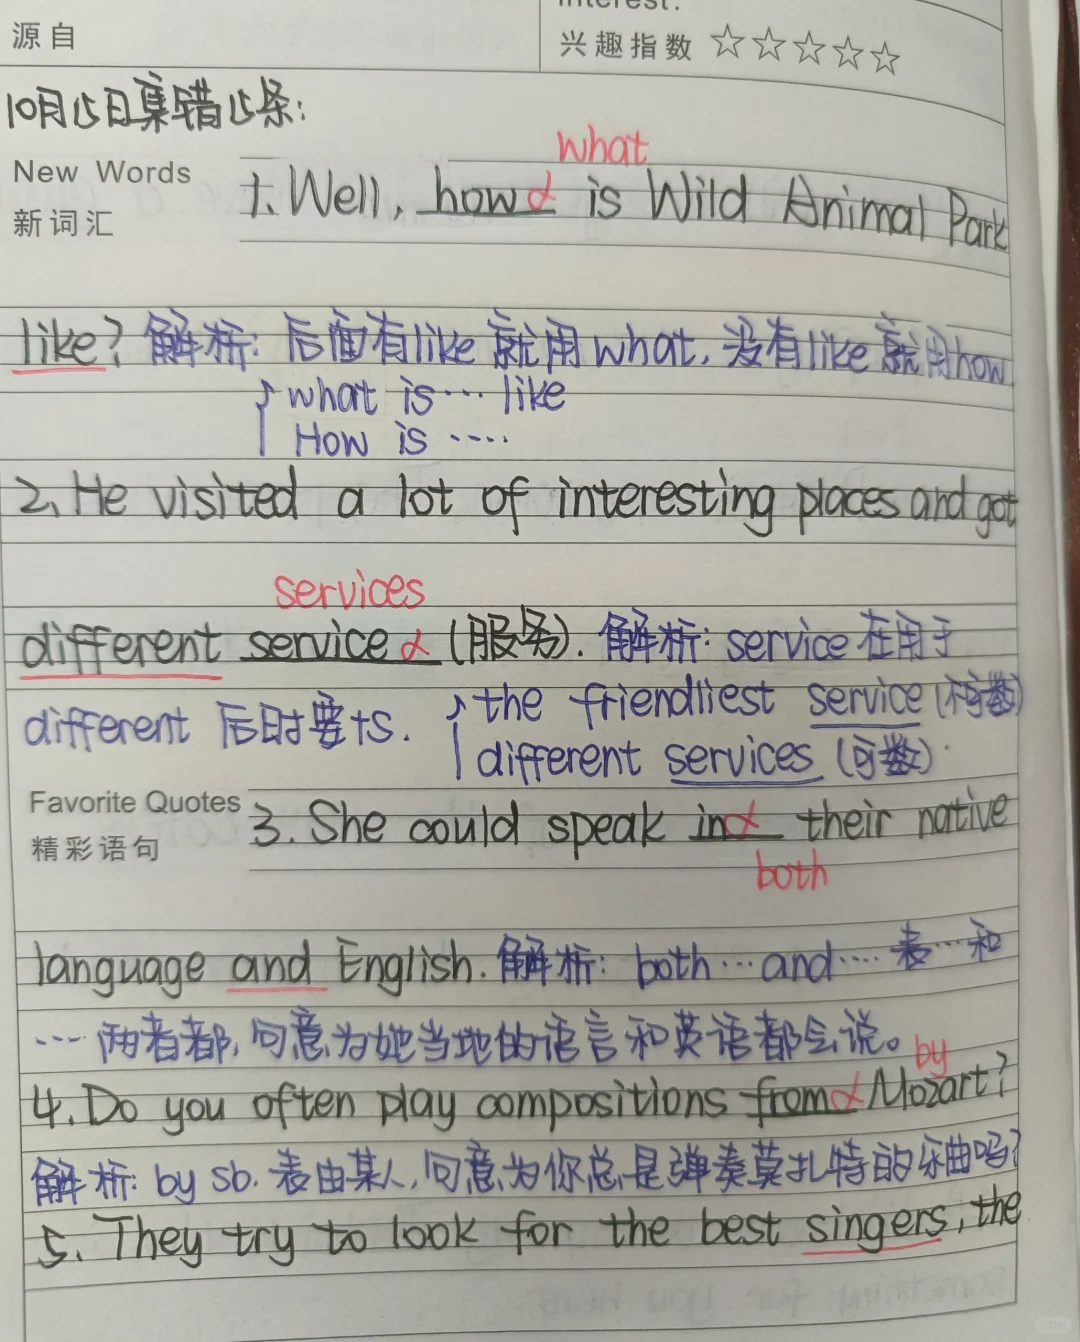 源自
兴趣指数 ☆☆☆☆☆
10月15日集错15条:
what
New Words
1. Well, how is Wild Animal Park
新词汇
like? 解析: 后面有like就用what, 没有like就用how
what is … like
How is ….
2. He visited a lot of interesting places and got
services
different service (服务). 解析: service在用于
different 后时要+s. the friendliest service (不可数)
different services (可数).
Favorite Quotes
3. She could speak in their native
精彩语句
both
language and English. 解析: both … and …. 表…和
… 两者都, 句意为她当地的语言和英语都会说。
by
4. Do you often play compositions from Mozart?
解析: by sb. 表由某人, 句意为你总是弹奏莫扎特的乐曲吗?
5. They try to look for the best singers, the